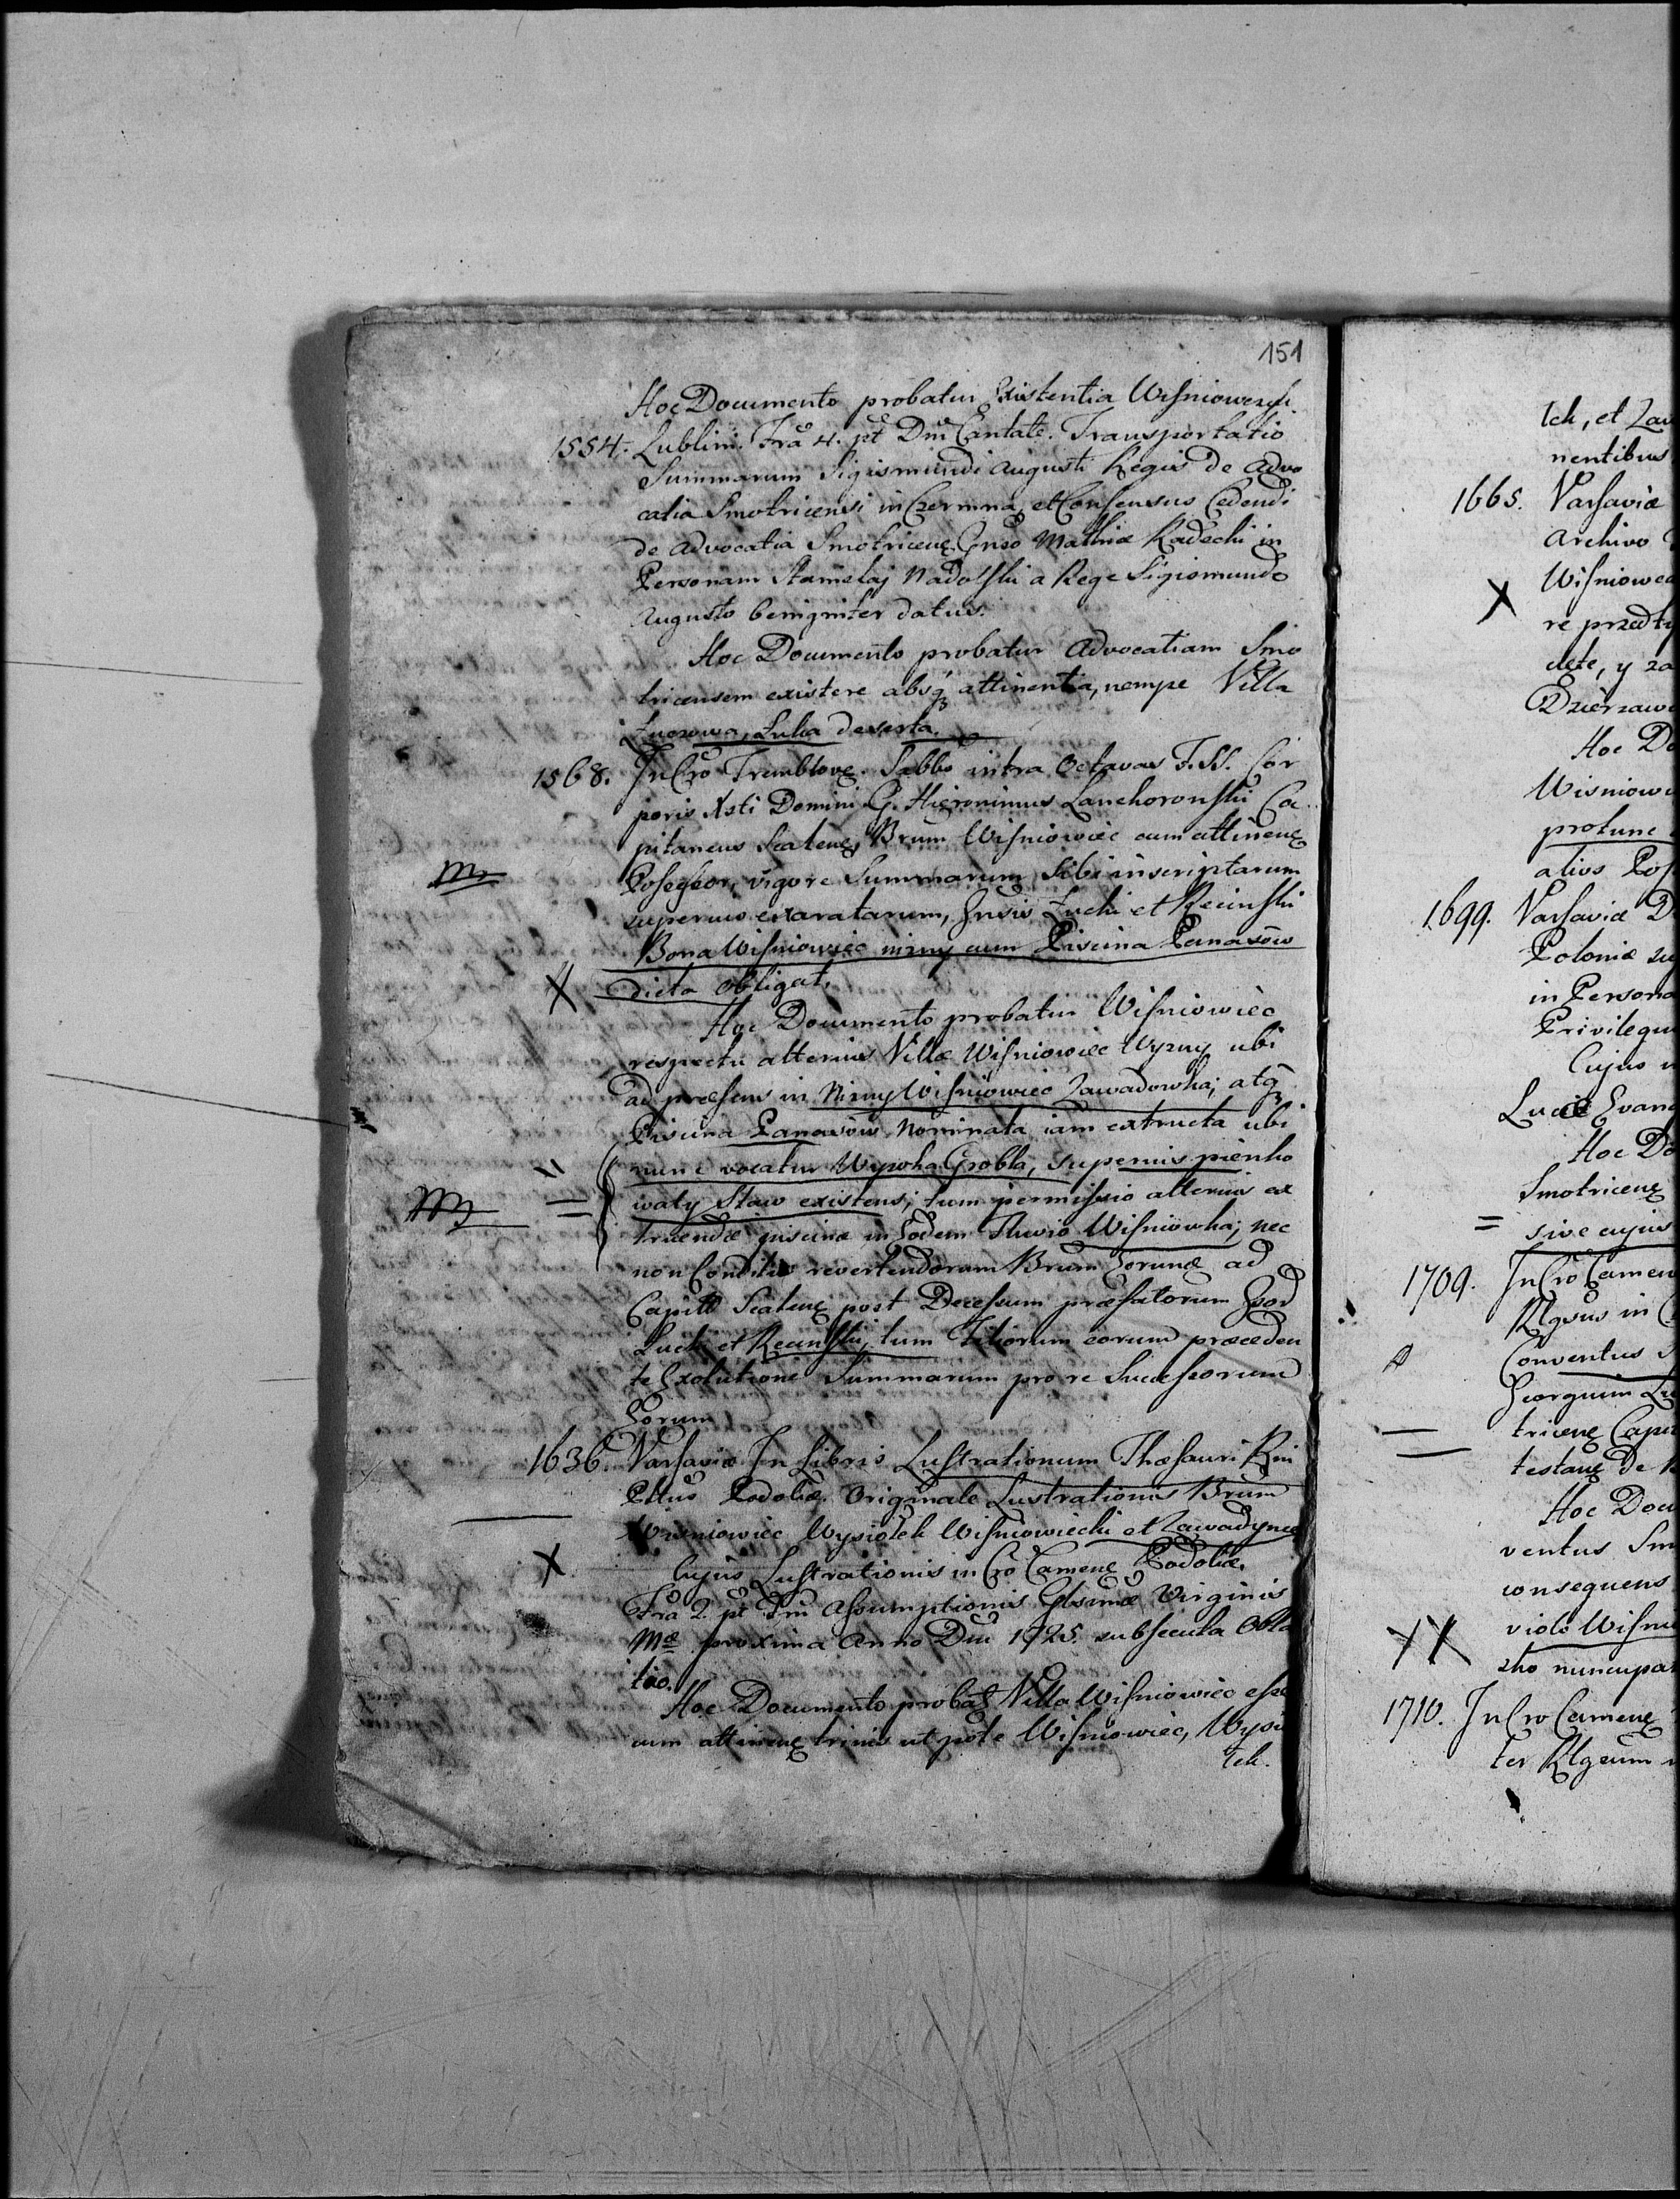 151
Hoc Documento probatur Existentia Wiſniowczyk.
1554. Lublini. Fra 4. pt Dni Cantate. Transportatio
Summarum Sigismundi Augusti Regis de Advo
catia Smotricensi in Czermna, et Consensus Cedendi
de Advocatia Smotricen Gnso Mathiæ Radecki in
Personam Stanislaj Nadolſki a Rege Sigismundo
Augusto benigniter datus.
Hoc Documento probatur Advocatiam Smo
tricensem existere absq attinentia, nempe Villa
deserta.
1568. In Cro Tremblove. Sabbo intra Octavas F. SS. Cor
poris Xsti Domini G. Hieronimus Lanckoronſki Ca
pitaneus Scalene, Brum Wiſniowiec cum attinene
Poſeſsor, vigore Summarum Sibi inscriptarum
superius exaratarum, Gnsis Łucki et Recinſki
Bona Wiſniowiec nizny cum Piscina Panasow
dicta obligat.
Hoc Documento probatur Wiſniowiec
respectu alterius Villæ Wiſniowiec Wyzny ubi
ad præsens in Nizny Wiſniowiec Zawadowka; atq
Piscina Panasow Nominata iam extructa ubi
nunc vocatur Wysoka Grobla, superius pienko
waty Staw existens; tum permiſsio alterius ex
truendæ piscinæ in Eodem Fluvio Wiſniowka; nec
non Conditio revertendorum Brum Eorund ad
Capitt Scalene post Deceſsum præfatorum Gsor
Lucki et Recinſki, tum Filiorum eorum præceden
te Exolutione Summarum pro re Succeſsorum
Eorum
1636. Varſaviæ In Libris Luſtrationum Thesauri Rni
Pttus Podoliæ. Originale Lustrationis Brum
Wisniowiec Wysiolek Wiſniowiecki et Zawadynce
Cujus Luſtrationis in Cro Camene Podoliæ.
Fra 2. pt Fm Aſsumptionis Gbsimæ Virginis
Mæ proxima Anno Dni 1725. subsecuta Obla
tio.
Hoc Documento probat Villa Wiſniowiec eſse
cum attinene trinis utpote Wiſniowiec, Wysio
łek.
łek, et Zaw
nentibus
1665. Varſaviæ
Archivo
Wiſniowec
re przedty
dete, y za
Dzierzawc
Hoc Do
Wisniowi
protunc
alios Poſ
1699. Varſaviæ D
Poloniæ
in Persona
Privilegiu
Cujus
Lucæ Evang
Hoc Do
Smotricene
sive cujus
1709. In Cro Camen
in
Conventus
Georgium
tricene Capit
testane de
Hoc Docu
ventus Sm
consequens
violo Wiſni
nuncupat
1710. In Cro Camene